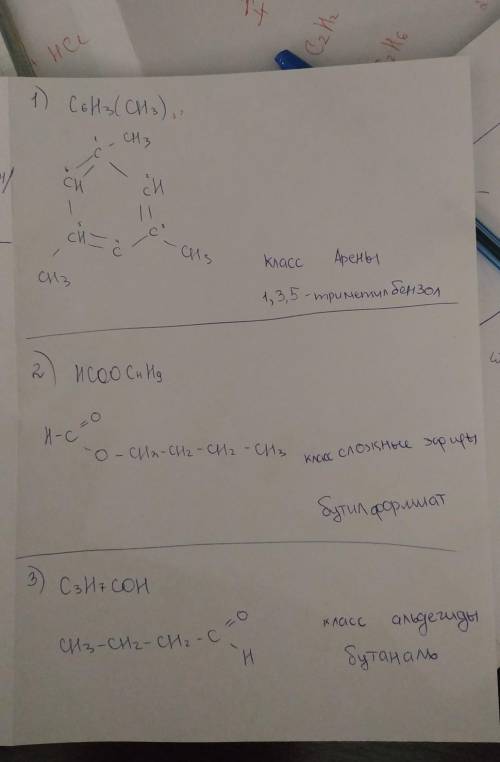 HCl
C2H2
1) C6H3(CH3)3
C - CH3
CH CH
CH = C C
CH3 CH3
класс Арены
1,3,5-триметилбензол
2) HCOOC4H9
H-C =O
O-CH2-CH2-CH2-CH3 класс сложные эфиры
бутилформиат
3) C3H7COH
класс альдегиды
CH3-CH2-CH2-C =O
H
бутаналь